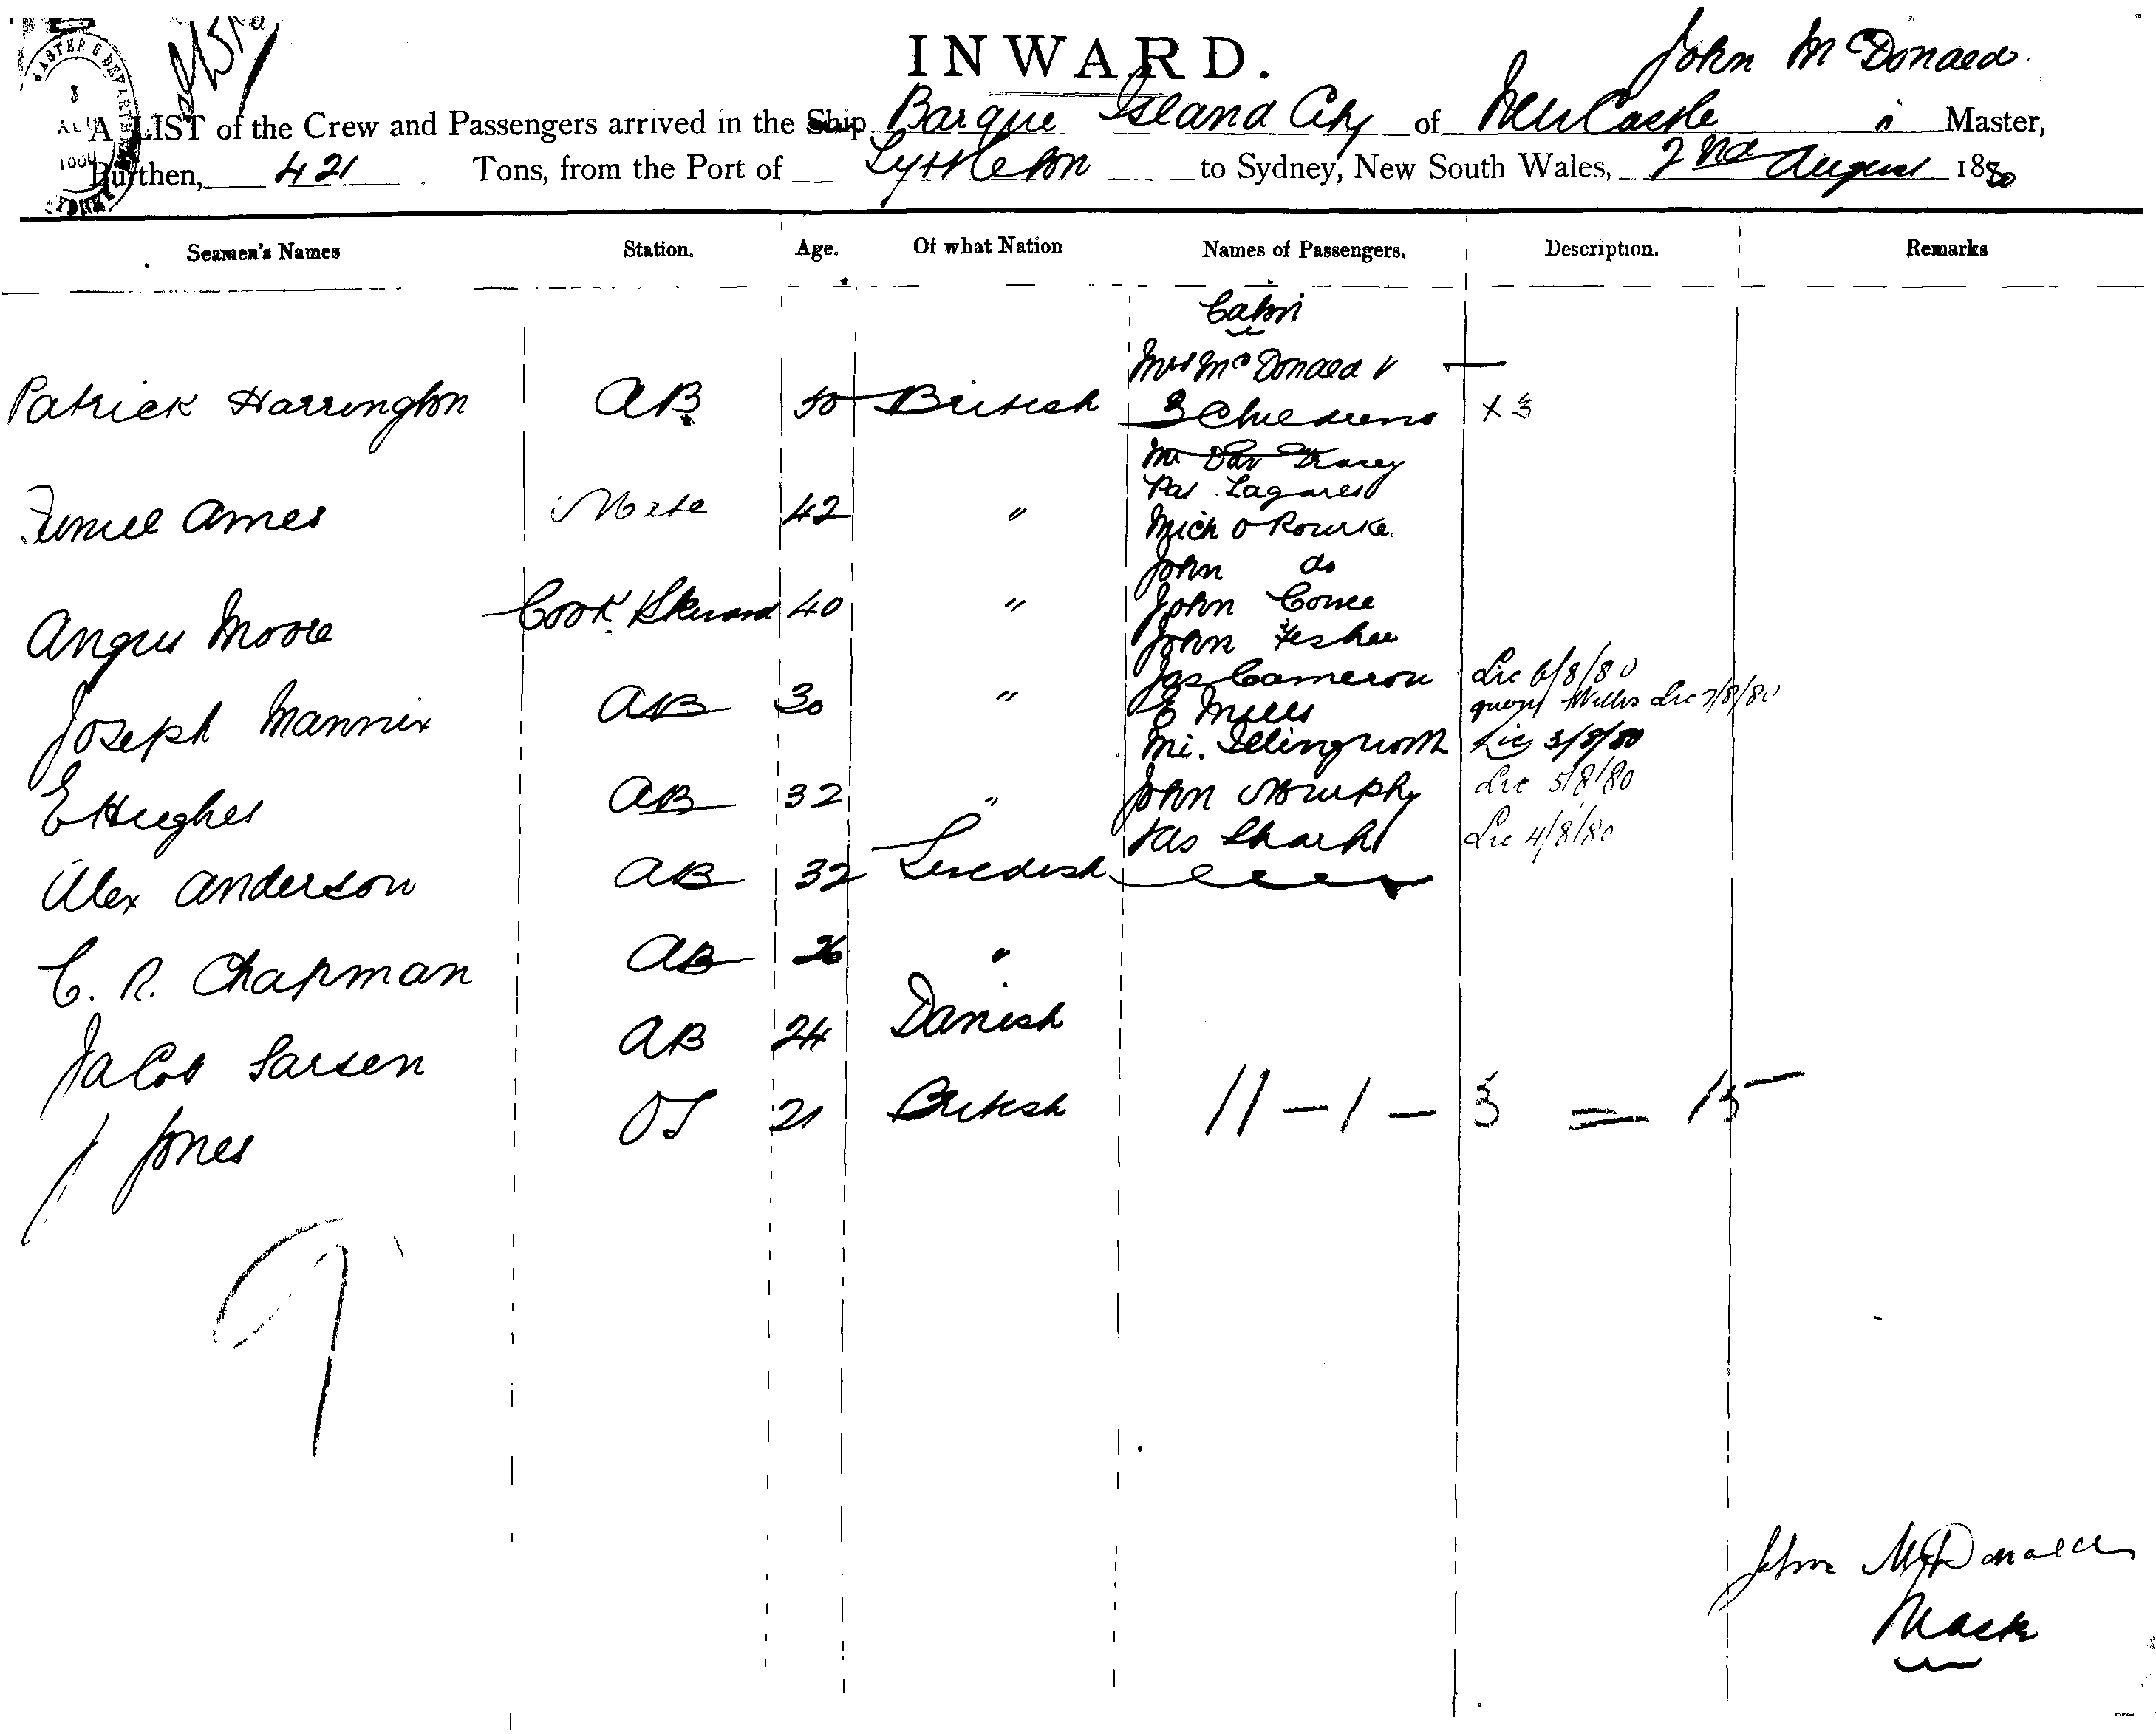 INWARD.
John McDonald
A LIST of the Crew and Passengers arrived in the Ship Barque Island City of NewCastle Master,
Burthen, 421 Tons, from the Port of Lyttleton to Sydney, New South Wales, 2nd August 1880
Seamen's Names Station. Age. Of what Nation Names of Passengers. Description. Remarks
Cabin
Mrs McDonald
Patrick Harrington AB 50 British 3 Childrens x 3
Mr Dav Tracey
Pat
Ames Mate 42 " Mich O Rourke.
John do
Angus Moore Cook & Steward 40 " John
John
Jas Cameron Dic 6/8/80
Joseph Mannix AB 30 " E Mills Dic 7/8/80
Mi. Illingworth Dic 3/8/80
E Hughes AB 32 " John Murphy Dic 5/8/80
Jas Dic 4/8/80
Alex Anderson AB 32 Swedish
C. R. Chapman AB 26 "
Jacob Larsen AB 24 Danish
J Jones OS 21 British 11 - 1 - 3 = 15
9
John McDonald
Mastr